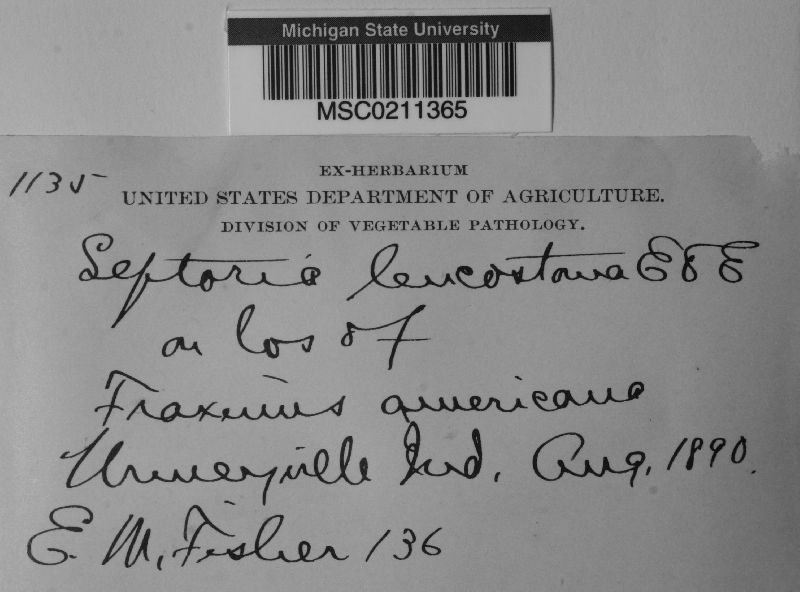 Michigan State University
MSC0211365
EX-HERBARIUM
1135
UNITED STATES DEPARTMENT OF AGRICULTURE.
DIVISION OF VEGETABLE PATHOLOGY.
Septoria leucostoma E & E
on lvs of
Fraxinus americana
Urmeyville Ind, Aug. 1890.
E. M. Fisher 136